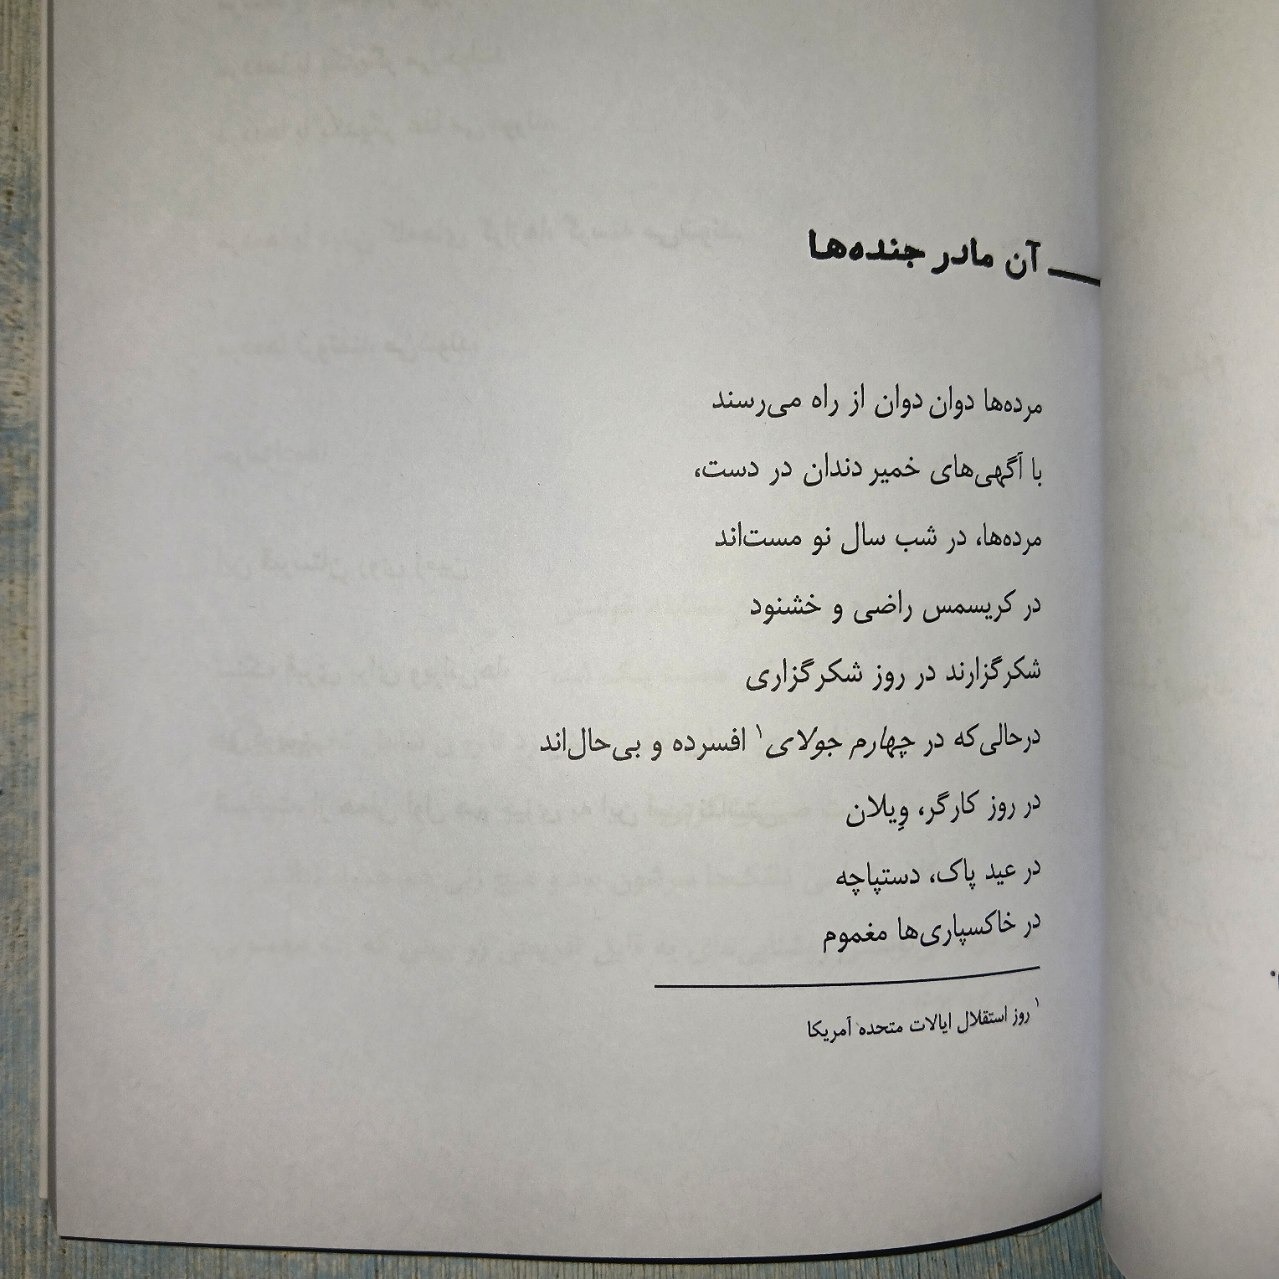 آن مادر جنده‌ها
مرده‌ها دوان دوان از راه می‌رسند
با آگهی‌های خمیر دندان در دست،
مرده‌ها، در شب سال نو مست‌اند
در کریسمس راضی و خشنود
شکرگزارند در روز شکرگزاری
درحالی‌که در چهارم جولای۱ افسرده و بی‌حال‌اند
در روز کارگر، وِیلان
در عید پاک، دستپاچه
در خاکسپاری‌ها مغموم
۱ روز استقلال ایالات متحده آمریکا